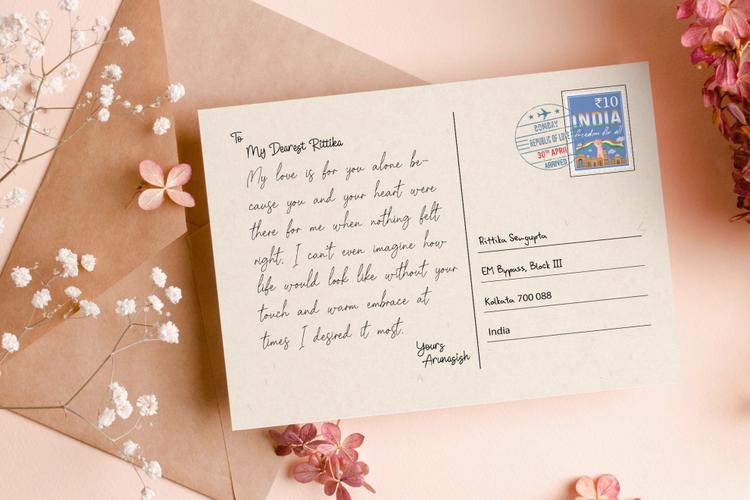 To
My Dearest Rittika
My love is for you alone be-
cause you and your heart were
there for me when nothing felt
right. I can't even imagine how
life would look like without your
touch and warm embrace at
times I desired it most.
Yours
Arunasish
₹10
INDIA
freedom for all
BOMBAY
REPUBLIC OF
30TH APRIL
ARRIVED
Rittika Sengupta
EM Bypass, Block III
Kolkata 700 088
India